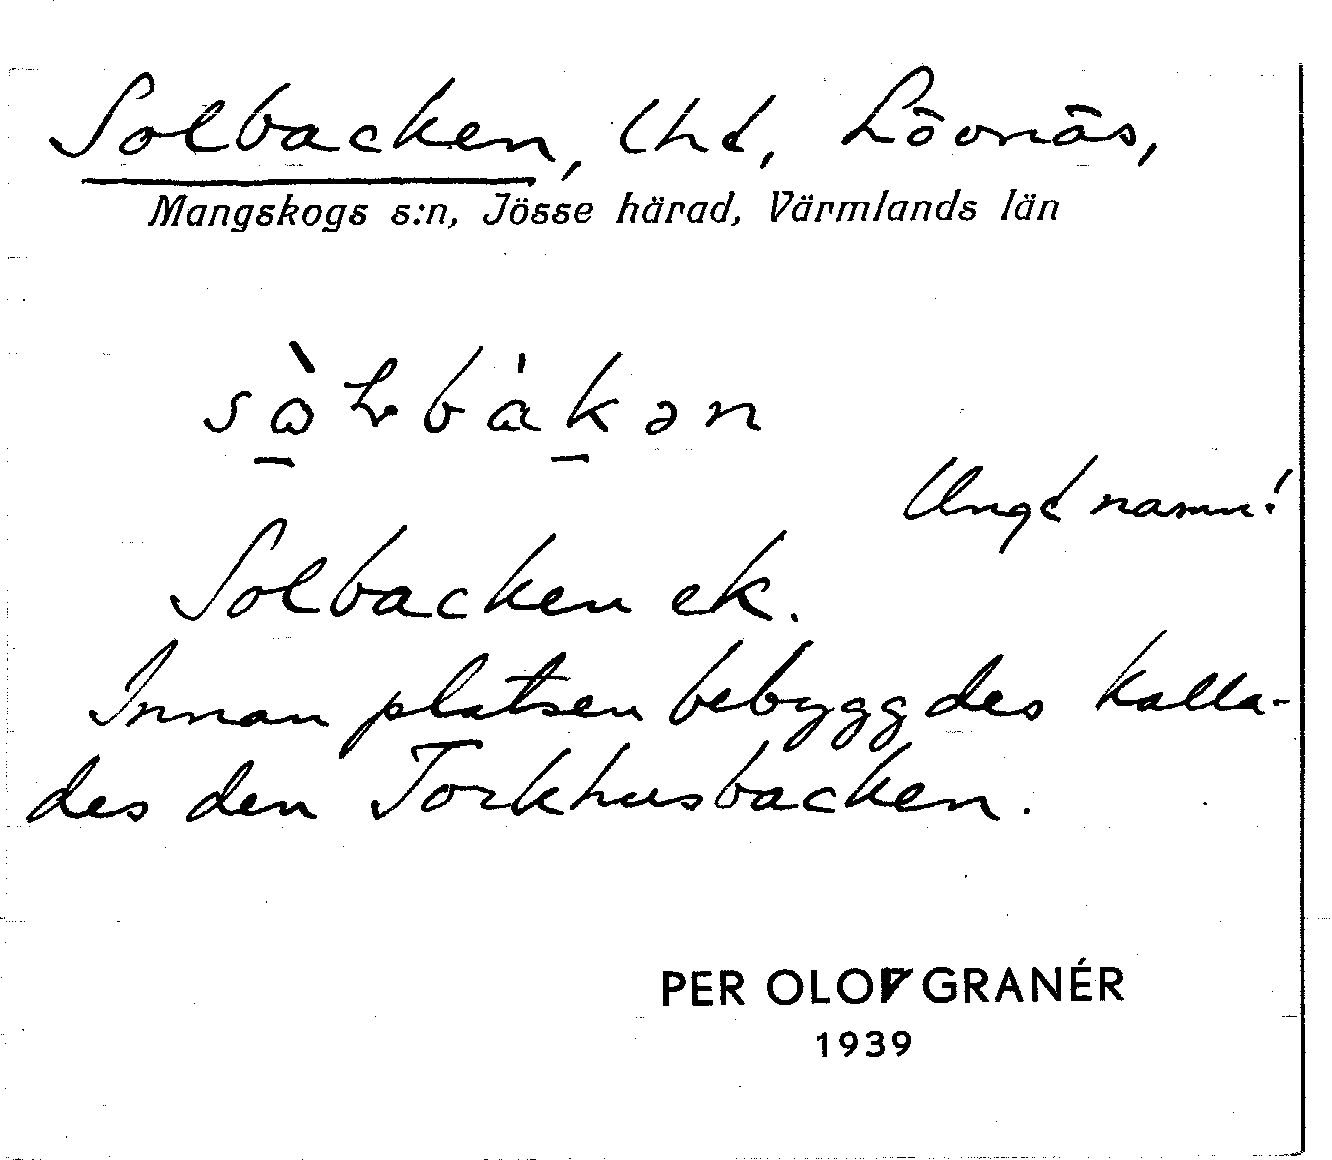 Solbacken, lhd, Lövnäs,
Mangskogs s:n, Jösse härad, Värmlands län
Ungt namn!
Solbacken ek.
Innan platsen bebyggdes kalla-
des den Torkhusbacken.
PER OLOF GRANÉR
1939